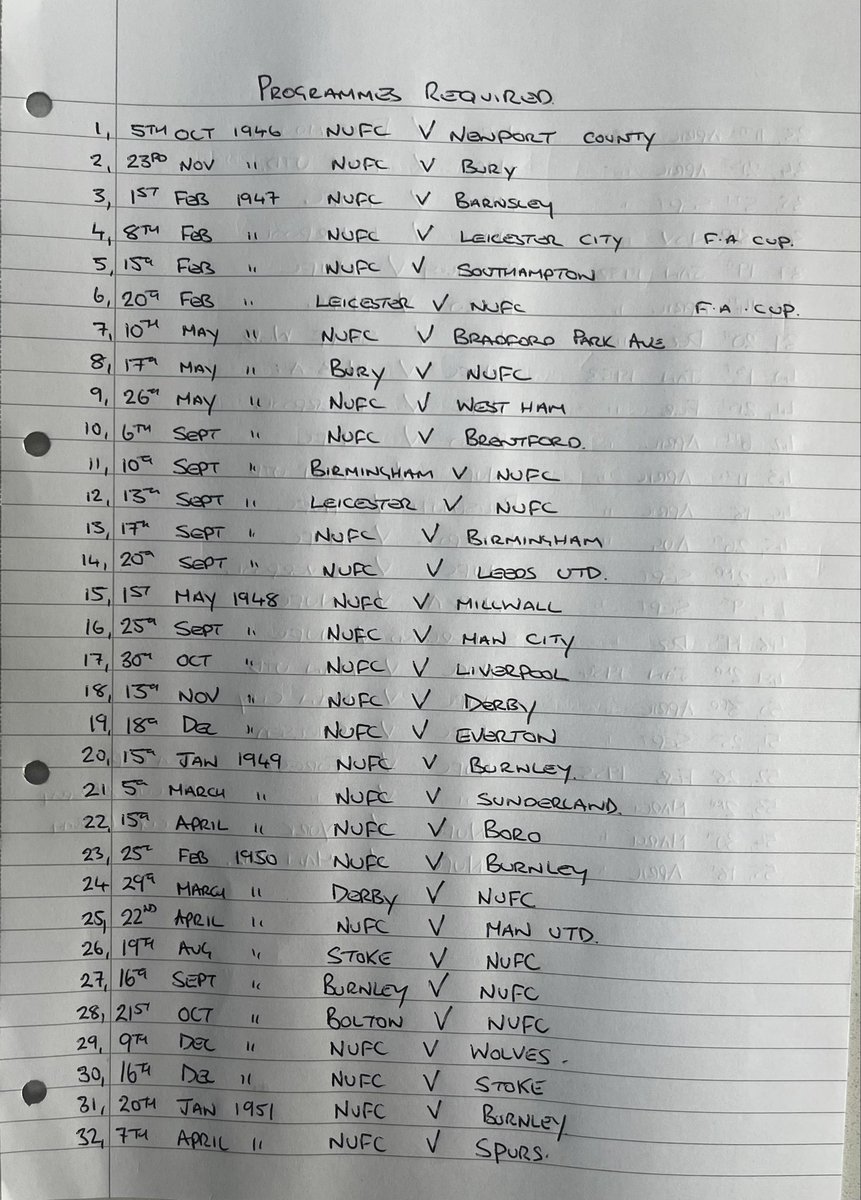 PROGRAMMES REQUIRED.
1, 5TH OCT 1946 NUFC V NEWPORT COUNTY
2, 23RD NOV " NUFC V BURY
3, 1ST FEB 1947 NUFC V BARNSLEY
4, 8TH FEB " NUFC V LEICESTER CITY F.A CUP.
5, 15TH FEB " NUFC V SOUTHAMPTON
6, 20TH FEB " LEICESTER V NUFC F.A. CUP.
7, 10TH MAY " NUFC V BRADFORD PARK AVE
8, 17TH MAY " BURY V NUFC
9, 26TH MAY " NUFC V WEST HAM
10, 6TH SEPT " NUFC V BRENTFORD.
11, 10TH SEPT " BIRMINGHAM V NUFC
12, 13TH SEPT " LEICESTER V NUFC
13, 17TH SEPT " NUFC V BIRMINGHAM
14, 20TH SEPT " NUFC V LEEDS UTD.
15, 1ST MAY 1948 NUFC V MILLWALL
16, 25TH SEPT " NUFC V MAN CITY
17, 30TH OCT " NUFC V LIVERPOOL
18, 13TH NOV " NUFC V DERBY
19, 18TH DEC " NUFC V EVERTON
20, 15TH JAN 1949 NUFC V BURNLEY.
21 5TH MARCH " NUFC V SUNDERLAND.
22, 15TH APRIL " NUFC V BORO
23, 25TH FEB 1950 NUFC V BURNLEY
24 29TH MARCH " DERBY V NUFC
25, 22ND APRIL " NUFC V MAN UTD.
26, 19TH AUG " STOKE V NUFC
27, 16TH SEPT " BURNLEY V NUFC
28, 21ST OCT " BOLTON V NUFC
29, 9TH DEC " NUFC V WOLVES.
30, 16TH DEC " NUFC V STOKE
31, 20TH JAN 1951 NUFC V BURNLEY
32, 7TH APRIL " NUFC V SPURS.